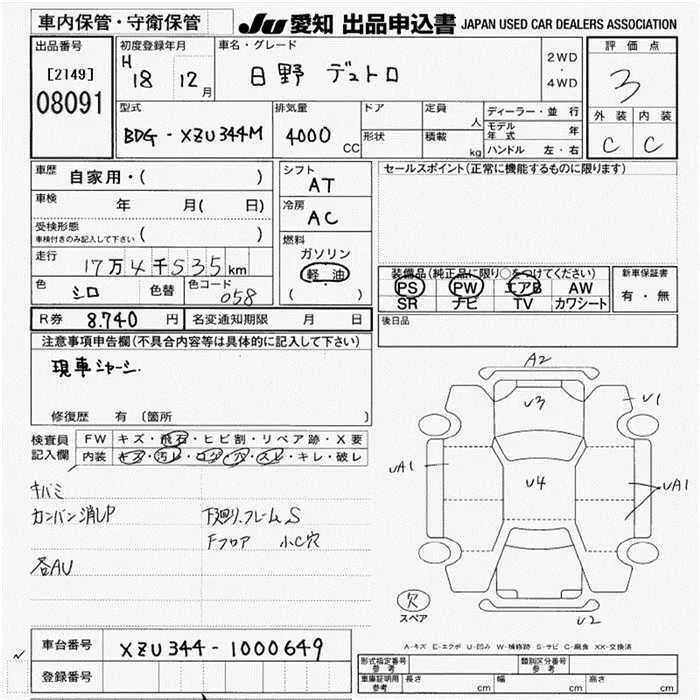 車内保管・守衛保管
JU 愛知 出品申込書 JAPAN USED CAR DEALERS ASSOCIATION
出品番号
[2149]
08091
初度登録年月
H
18 12 月
車名・グレード
日野 デュトロ
2WD
・
4WD
評価点
3
外装 内装
C C
型式
BDG-XZU344M
排気量
4000 CC
ドア
形状
定員
人
積載
kg
ディーラー・並行
モデル年式 年
ハンドル 左・右
車歴
自家用・( )
車検
年 月( 日)
受検形態
車検付きのみ記入して下さい ( )
走行
17万4千535km
色
シロ
色替
色コード
058
シフト
AT
冷房
AC
燃料
ガソリン
・
軽油
( )
セールスポイント(正常に機能するものに限ります)
装備品(純正品に限り○をつけてください)
PS PW エアB AW
SR ナビ TV カワシート
新車保証書
有・無
R券 8.740 円
名変通知期限 月 日
後日品
注意事項申告欄(不具合内容等は具体的に記入して下さい)
現車ジャージ.
修復歴 有 [箇所 ]
検査員
記入欄
FW キズ・飛石・ヒビ割・リペア跡・X要
内装 キズ・汚レ・コゲ・穴・スレ・キレ・破レ
キバミ
カンバン消しP
下廻り.フレームS
Fフロア 小C穴
各AU
A2
U3
U1
UA1
U4
UA1
U2
欠
スペア
A-キズ E-エクボ U-凹み W-補修跡 S-サビ C-腐食 XX-交換済
車台番号
XZU344-1000649
登録番号
型式指定番号
参考
類別区分番号
参考
車庫証明用
参考
長さ cm
幅 cm
高さ cm